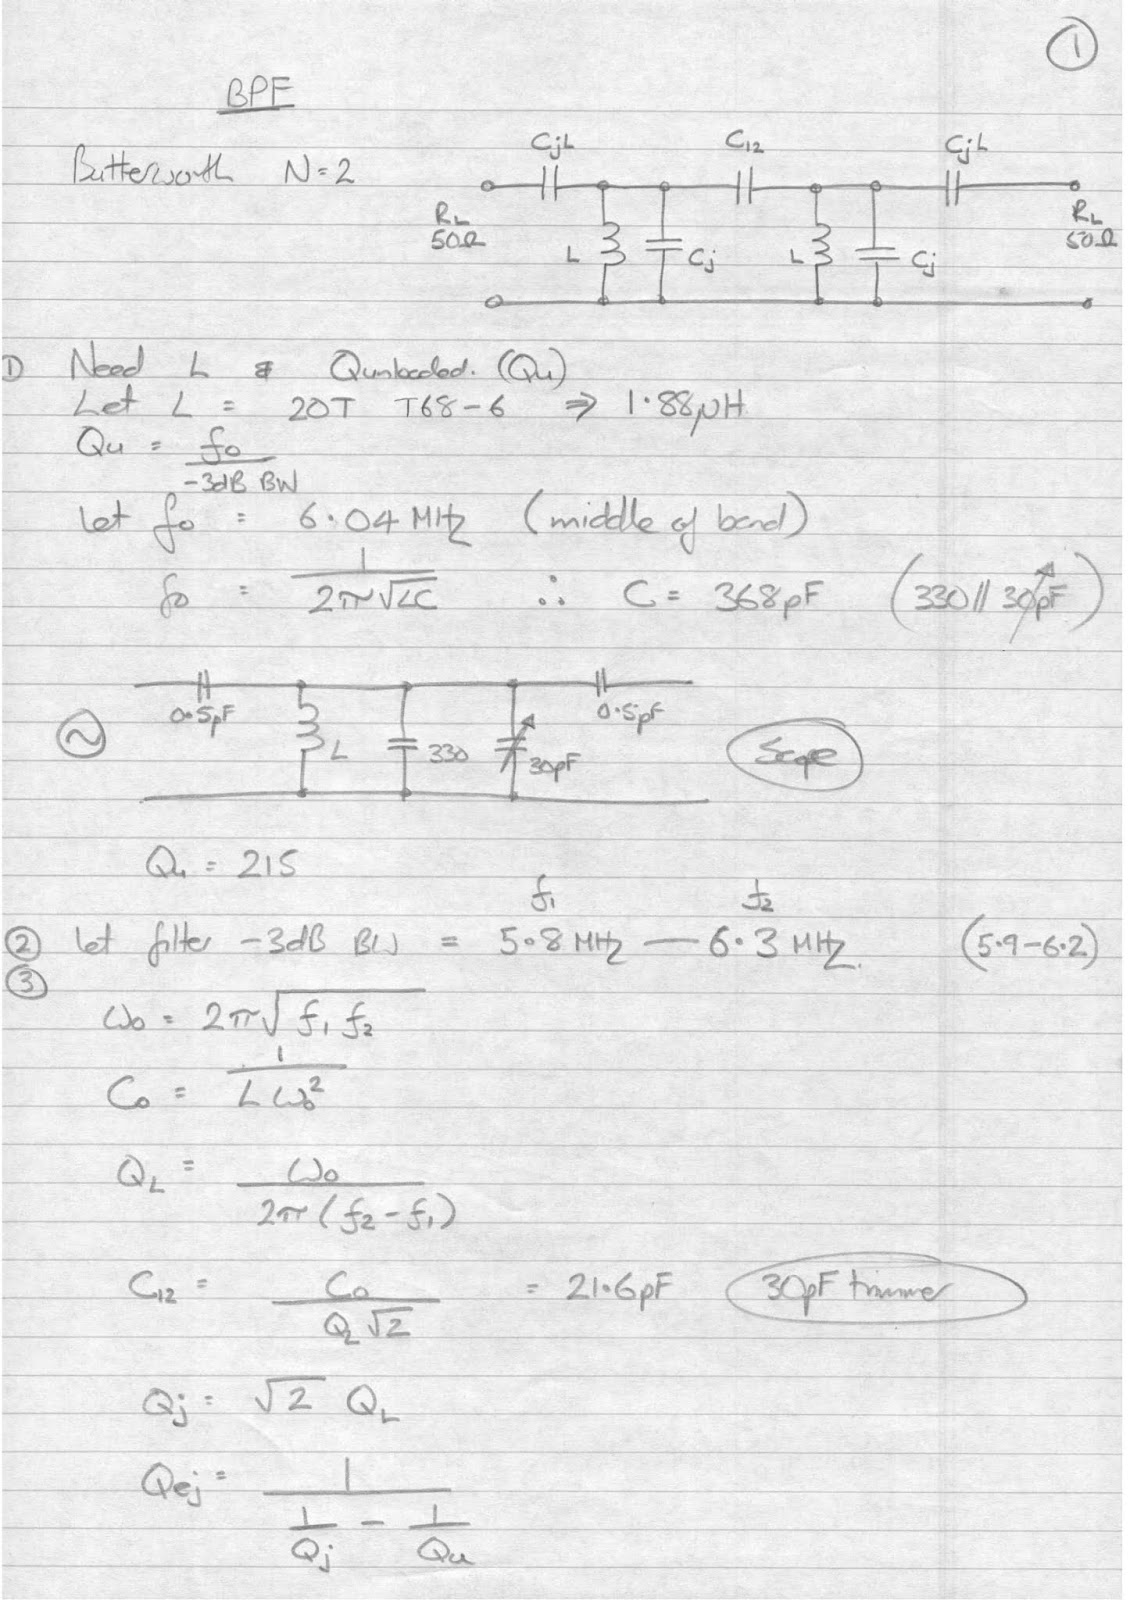 ①
BPF
Butterworth N=2
CjL C12 CjL
RL 50Ω L Cj L Cj RL 50Ω
① Need L & Qunloaded. (Qu)
Let L = 20T T68-6 ⇒ 1.88μH
Qu = f₀ / -3dB BW
let f₀ = 6.04 MHz (middle of band)
f₀ = 1 / 2π√LC ∴ C = 368pF (330//30pF)
0.5pF L 330 30pF 0.5pF
~ Scope
Qu = 215
f₁ f₂
② let filter -3dB BW = 5.8 MHz — 6.3 MHz. (5.9-6.2)
③
ω₀ = 2π√f₁ f₂
C₀ = 1 / L ω₀²
QL = ω₀ / 2π(f₂-f₁)
C12 = C₀ / QL√2 = 21.6pF 30pF trimmer
Qj = √2 QL
Qej = 1 / 1/Qj - 1/Qu